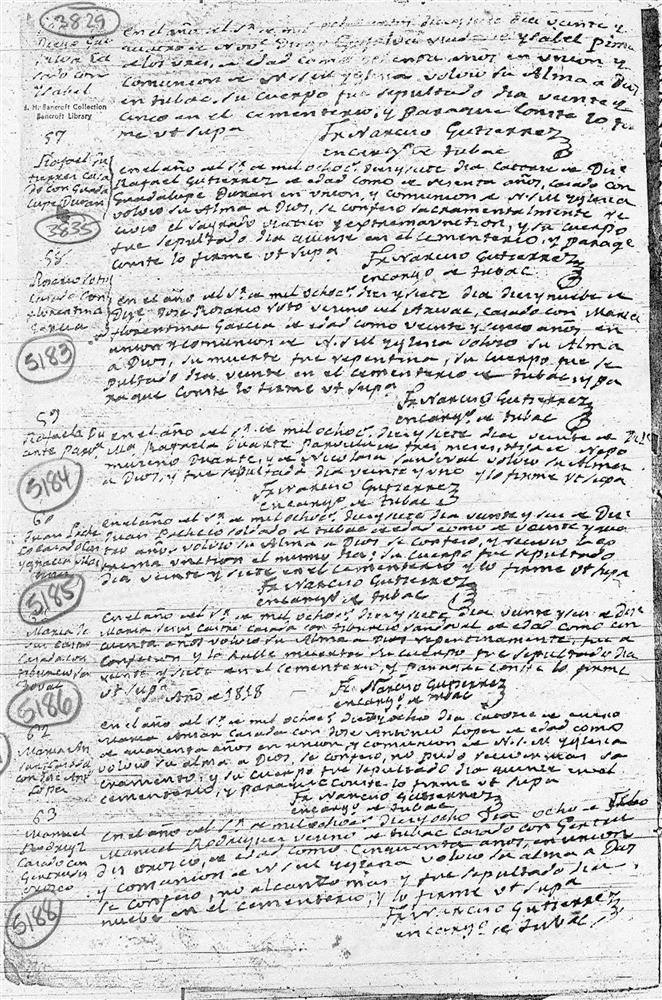 3829
Diego Gri
jalva Ca
sado con
Ysabel
H. H. Bancroft Collection
Bancroft Library
en el año del Sr. de mil ocho diez y siete dia veinte y
quatro de Nove Diego viudo de Ysabel Pima
de edad como ochenta años en union y
comunion de N. S. M. Yglesia volvio su Alma a Dios
en Tubac, su cuerpo fue sepultado dia veinte y
cinco en el cementerio; y paraque conste lo fir
me ut supa
Fr. Narciso Gutierrez
encargo de Tubac
57
Rafael Gu
tierrez Casa
do con Guada
lupe Duran
3835
en el año del Sr. de mil ochoc. diez y siete dia catorce de Dize
Rafael Gutierrez de edad como de sesenta años, casado con
Guadalupe Duran en union, y comunion de N. S. M. Yglesia
volvio su Alma a Dios, se confeso sacramentalmente re
civio el sagrado viatico y extremauncion, y su cuerpo
fue sepultado dia quinze en el cementerio, y paraqe
conste lo firme ut supa
Fr. Narciso Gutierrez
encargo de Tubac
58
Rosario Soto
casado con
florentina
Garcia
5183
en el año del Sr. de mil ochoc. diez y siete dia diez y nuebe de
Dize Jose Rosario Soto vecino del Tubac, casado con Maria
florentina Garcia de edad como veinte y cinco años en
union y comunion de N. S. M. Yglesia volvio su Alma
a Dios, su muerte fue repentina, su cuerpo fue se
pultado dia veinte en el cementerio de Tubac, y pa
raque conste lo firme ut supa
Fr. Narciso Gutierrez
encargo de Tubac
59
Rafaela Du
arte Parva
5184
en el año del Sr. de mil ochoc. diez y siete dia veinte de Dize
Ma. Rafaela Duarte Parvula de tres meses, hija de Nepo
muceno Duarte, y de Nicolasa Sandoval volvio su Alma
a Dios, y fue sepultada dia veinte y uno y lo firme ut supa
Fr. Narciso Gutierrez
encargo de Tubac
60
Juan Pache
co casado con
Ygnacia
5185
en el año del Sr. de mil ochoc. diez y siete dia veinte y seis de Dize
Juan Pacheco soldado de Tubac de edad como de veinte y qua
tro años volvio su Alma a Dios se confeso, y recivio la ex
trema uncion el mismo dia: su cuerpo fue sepultado
dia veinte y siete en el cementerio y lo firme ut supa
Fr. Narciso Gutierrez
encargo de Tubac
Maria Je
sus Castro
Casada con
Tiburcio San
doval
5186
en el año del Sr. de mil ochoc. diez y siete dia veinte y seis de Dize
Maria Jesus Castro Casada con Tiburcio Sandoval de edad como cin
cuenta años volvio su Alma a Dios repentinamente, fue a
confesion y la halle muerta su cuerpo fue sepultado dia
veinte y siete en el cementerio, y paraque conste lo firme
ut supa
Año de 1818
Fr. Narciso Gutierrez
encargo de Tubac
62
Maria An
con Jose Anto
Lopez
en el año del Sr. de mil ochoc. diez y ocho dia catorce de enero
Maria casada con Jose Antonio Lopez de edad como
de quarenta años en union, y comunion de N. S. M. Yglesia
volvio su alma a Dios, se confeso, no pudo recivir mas sa
cramento; y su cuerpo fue sepultado dia quinze en el
cementerio, y paraque conste lo firme ut supa
Fr. Narciso Gutierrez
encargo de Tubac
63
Manuel
Rodrigz
Casado con
Gertrudis
Orozco
5188
en el año del Sr. de mil ochoc. diez y ocho dia ocho de Febo
Manuel Rodriguez vecino de Tubac casado con Gertru
dis Orozco, de edad como cinquenta años, en union
y comunion de N. S. M. Yglesia volvio su alma a Dios
se confeso, no alcanzo mas y fue sepultado dia
nuebe en el cementerio, y lo firme ut supa
Fr. Narciso Gutierrez
encargo de Tubac